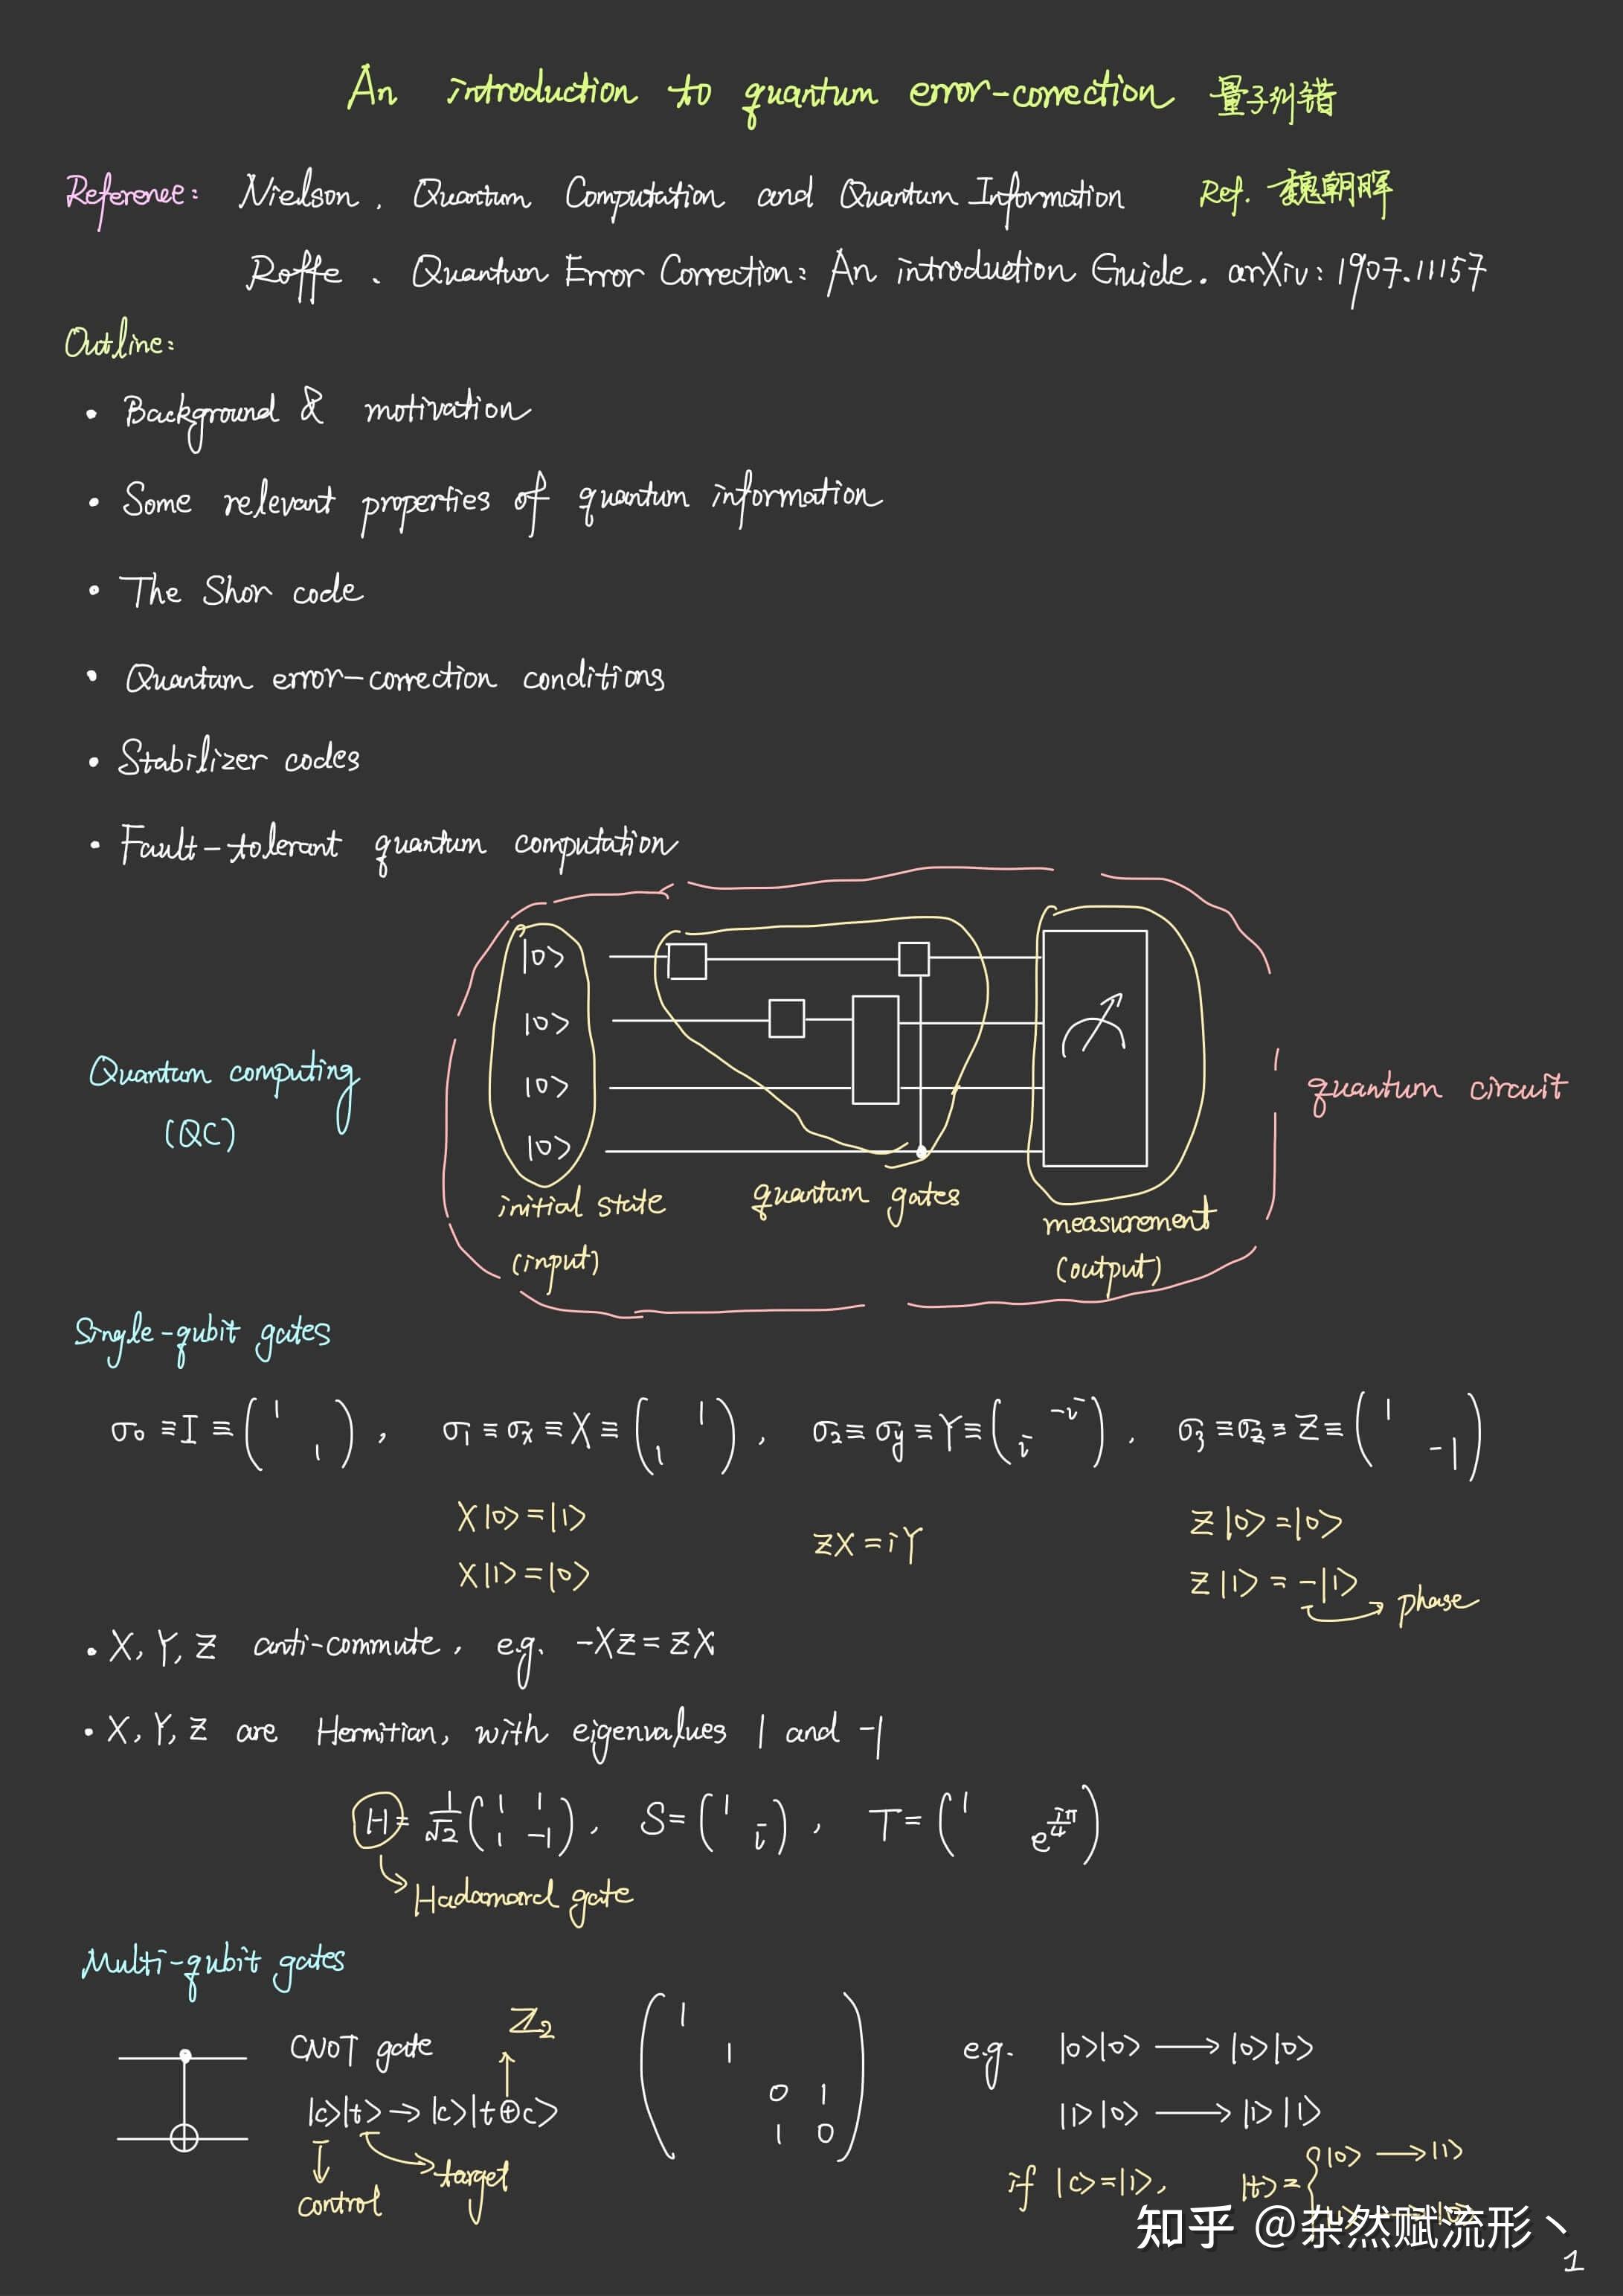 An introduction to quantum error-correction 量子纠错
Reference: Nielson. Quantum Computation and Quantum Information Ref. 魏朝晖
Roffe. Quantum Error Correction: An introduction Guide. arXiv: 1907.11157
Outline:
• Background & motivation
• Some relevant properties of quantum information
• The Shor code
• Quantum error-correction conditions
• Stabilizer codes
• Fault-tolerant quantum computation
|0>
|0>
|0>
|0>
Quantum computing
(QC)
quantum circuit
initial state
(input)
quantum gates
measurement
(output)
Single-qubit gates
σ0 ≡ I ≡ (1 1), σ1 ≡ σx ≡ X ≡ (1 1), σ2 ≡ σy ≡ Y ≡ (-i i), σ3 ≡ σz ≡ Z ≡ (1 -1)
X|0> = |1> ZX = iY Z|0> = |0>
X|1> = |0> Z|1> = -|1> phase
• X, Y, Z anti-commute, e.g. -XZ = ZX
• X, Y, Z are Hermitian, with eigenvalues 1 and -1
H = 1/√2 (1 1 1 -1), S = (1 i), T = (1 e^{iπ/4})
Hadamard gate
Multi-qubit gates
CNOT gate
Z2
|c>|t> → |c>|t⊕c>
control
target
1
1
0 1
1 0
e.g. |0>|0> → |0>|0>
|1>|0> → |1>|1>
if |c> = |1>, |t> = { |0> → |1>
知乎 @杂然赋流形丶
1